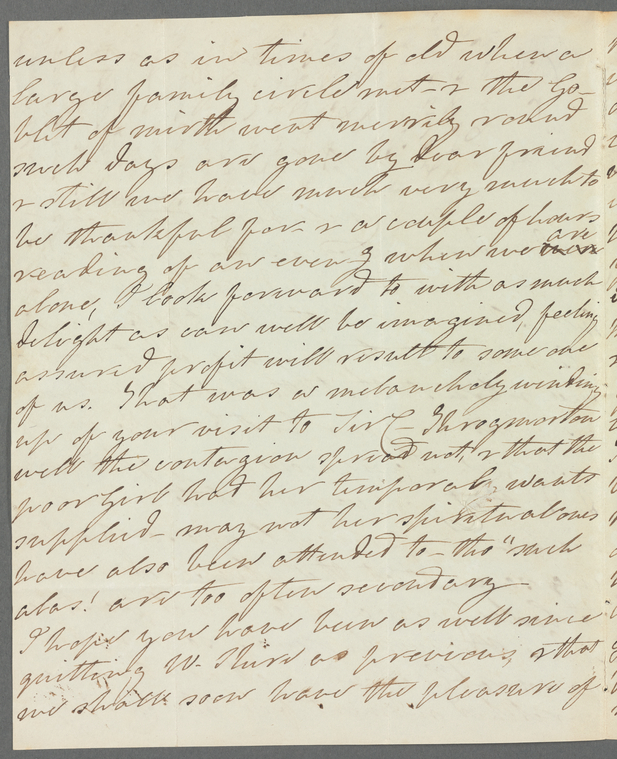 unless as in times of old when a
large family circle met - & the Go-
blet of mirth went merrily round
such days are gone by dear friend
& still we have much very much to
be thankful for - & a couple of hours
reading of an even.g when we are
alone, I look forward to with as much
delight as can well be imagined, feeling
assured profit will result to some one
of us. That was a melancholy winding
up of your visit to Sir C - Throgmorton
well the contagion spread not, & that the
poor Girl had her temporal wants
supplied - may not her spiritual ones
have also been attended to - tho' "such
alas! are too often secondary -
I hope you have been as well since
quitting W. Shire as previous, & that
we shall soon have the pleasure of